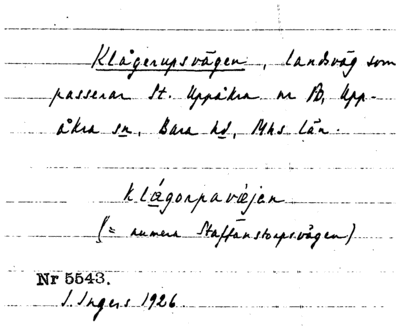 Klågerupsvägen, landsväg som
passerar St. Uppåkra nr 10, Upp-
åkra sn, Bara hd, Mhs län.
klågorpavæjen
(= numera Staffanstorpsvägen)
Nr 5543.
I. Ingers 1926.